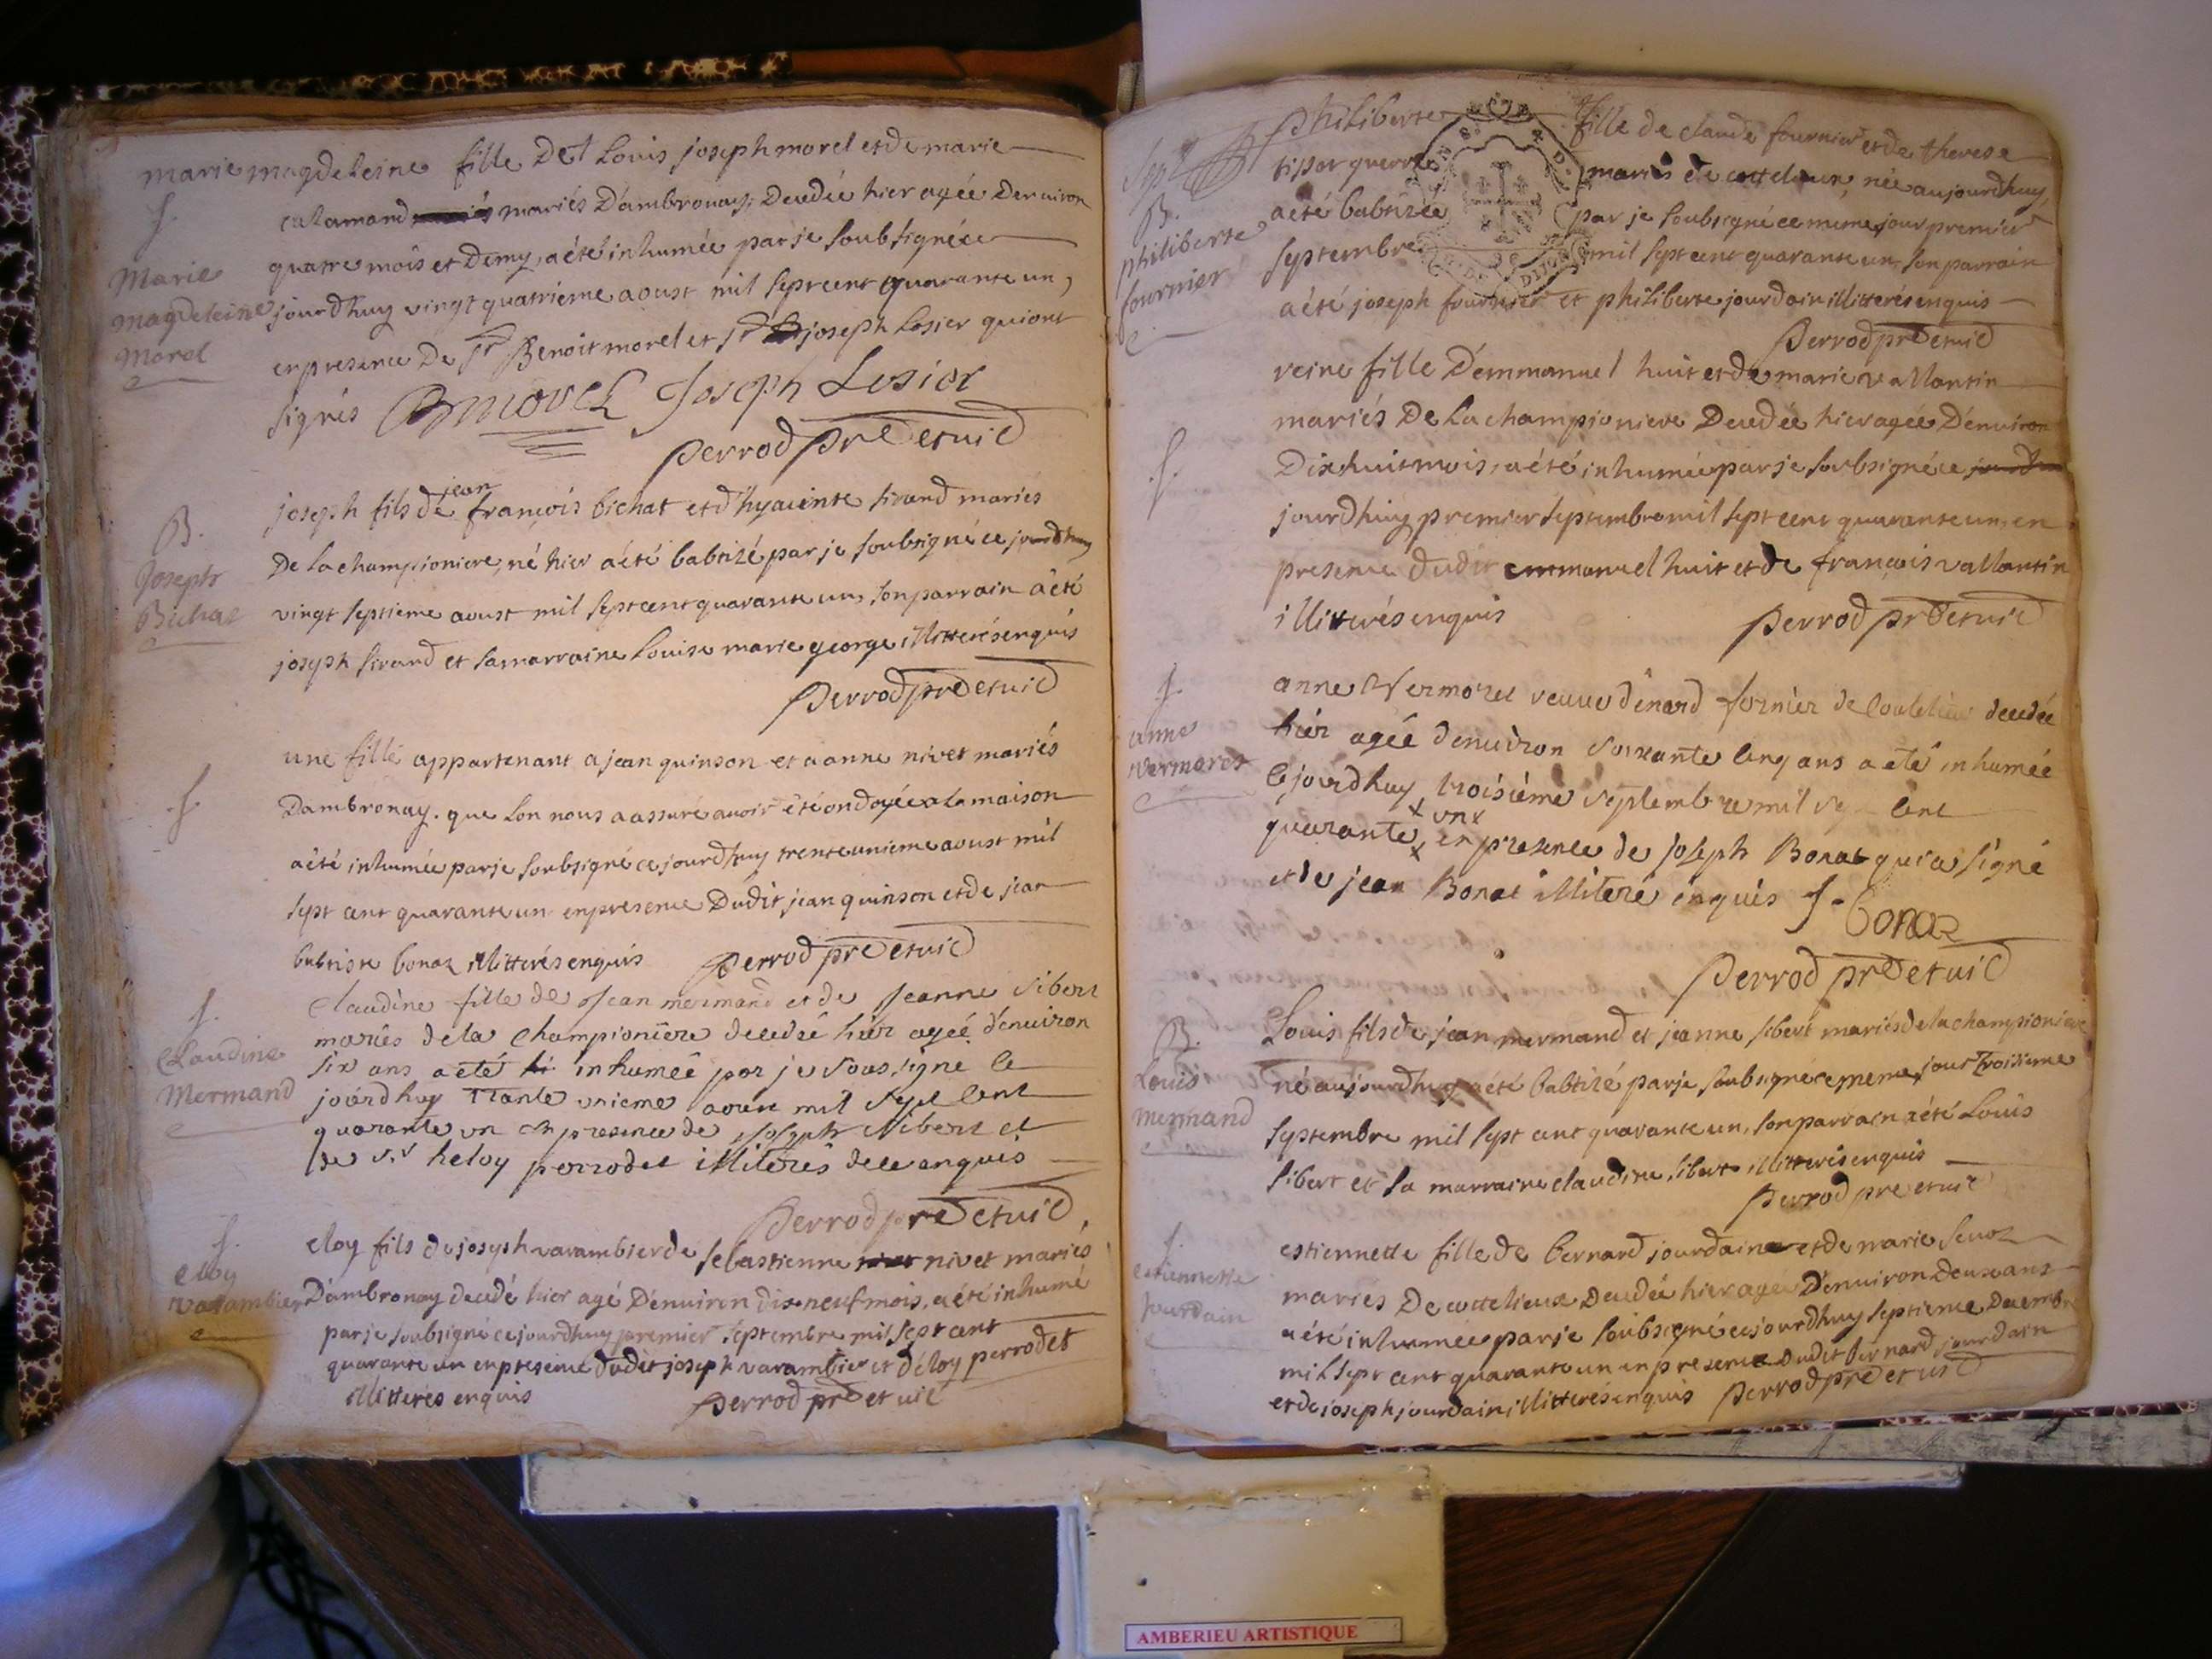 marie magdeleine fille De Louis joseph morel et de marie
calamand mariés D'ambronay, Decedée hier agée Denviron
quatre mois et Demy, a été inhumée par je soubsigné ce
jourdhuy vingt quatrieme aoust mil sept cent quarante un,
en presence De Sr Benoit morel et Sr joseph Losier qui ont
signés BMorel Joseph Losier
perrod pre et vic
f.
Marie
magdeleine
Morel
joseph fils de jean françois bichat et d'hyacinte sirand mariés
De la championiere, né hier a été babtizé par je soubsigné ce jourdhuy
vingt septieme aoust mil sept cent quarante un, son parrain a été
joseph sirand et sa marraine Louise marie george illitterés enquis
perrod pre et vic
B.
Joseph
Bichat
une fille appartenant a jean quinson et a anne nivet mariés
Dambronay. que lon nous a assuré avoir été ondoyée a la maison
a été inhumée par je soubsigné ce jourdhuy trente unieme aoust mil
sept cent quarante un en presence Dudit jean quinson et de jean
babtiste bonaz illitterés enquis perrod pre et vic
f.
Claudine fille de Jean mermand et de Jeanne sibert
mariés de la Championiere decedée hier agée d'enuiron
six ans a eté inhumée par je soussigné ce
jourdhuy trante unieme aoust mil sept cent
quarante un en presence de Joseph sibert et
de heloy perrodet illiterés de ce enquis
perrod pre et vic
f.
Claudine
Mermand
eloy fils de joseph varambier de sebastienne nivet mariés
D'ambronay decedé hier agé D'enuiron dix neuf mois, a été inhumé
par je soubsigné ce jourdhuy premier septembre mil sept cent
quarante un en presence dudit joseph varambier et d'eloy perrodet
illitterés enquis perrod pre et vic
f.
eloy
varambier
philiberte fille de claude fournier et de therese
tissot guerraz mariés de cottelieux, née aujourdhuy,
a été babtizée par je soubsigné ce meme jour premier
septembre mil sept cent quarante un, son parrain
a été joseph fournier et philiberte jourdain illitterés enquis
perrod pre et vic
B.
philiberte
fournier
reine fille D'emmanuel huit et de marie vallantin
mariés De la championiere Decedée hier agée D'enuiron
Dix huit mois, a été inhumée par je soubsigné ce
jourdhuy premier septembre mil sept cent quarante un, en
presence dudit emmanuel huit et de françois vallantin
illitterés enquis perrod pre et vic
f.
anne Vermorel veuve denard fornier de decedée
hier agée denuiron soixante cinq ans a été inhumée
cejourdhuy troisieme septembre mil sept cent
quarante un en presence de Joseph Bonat qui a signé
et de jean Bonat illiteré enquis J. Bonaz
perrod pre et vic
f.
anne
vermorel
Louis fils de jean mermand et jeanne sibert mariés de la championiere
né aujourdhuy a été babtizé par je soubsigné ce meme jour troisieme
septembre mil sept cent quarante un, son parrain a été Louis
sibert et sa marraine claudine sibert illitterés enquis
perrod pre et vic
B.
Louis
Mermand
estiennette fille de bernard jourdain et de marie
mariés De cottelieux Decedée hier agée D'enuiron deux ans
a été inhumée par je soubsigné ce jourdhuy septieme
mil sept cent quarante un en presence dudit bernard jourdain
et de joseph jourdain illitterés enquis perrod pre et vic
f.
estiennette
jourdain
AMBERIEU ARTISTIQUE